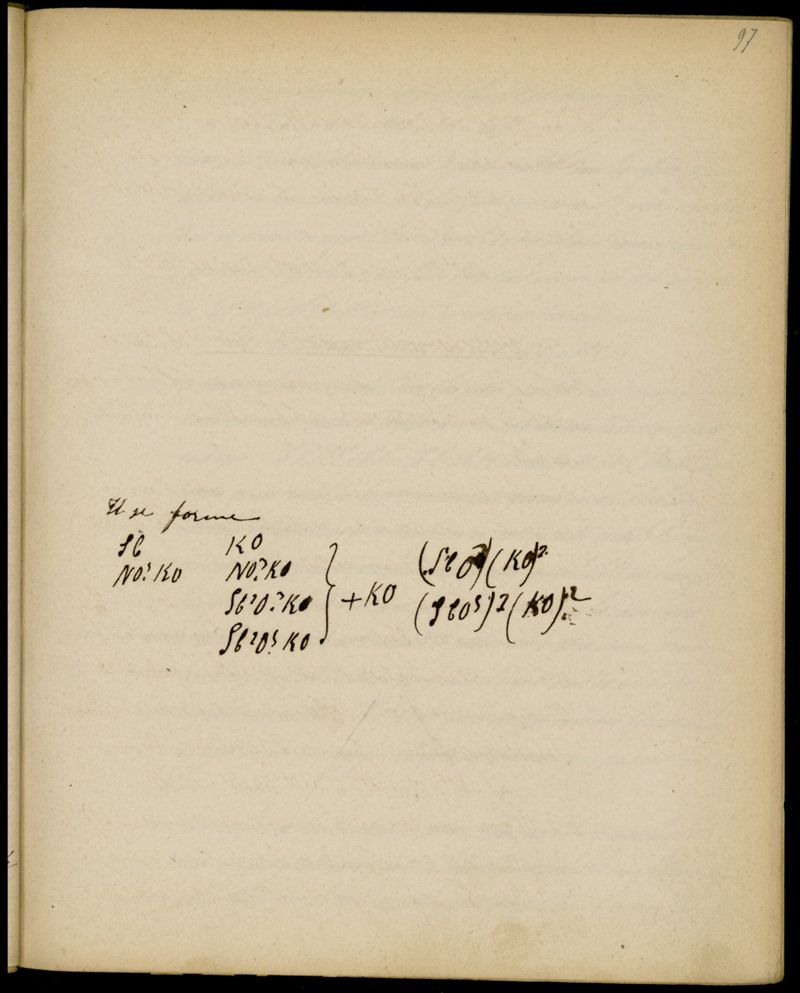 97
Il se forme
Sb KO
NO⁵KO NO³KO
Sb²O³KO + KO (SbO)(KO)²
Sb²O⁵KO (SbO⁵)²(KO)²